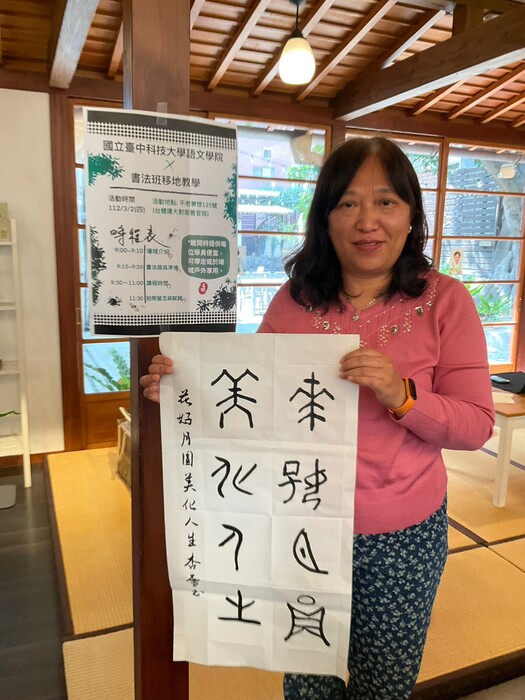 國立臺中科技大學語文學院
×
書法班移地教學
活動時間
112/3/2(四)
活動地點: 不老夢想125號
時程表
9:00~9:10 場域介紹
9:10~9:30 書法器具準備
9:30~11:00 課程時間
11:30 拍照留念與賦歸
*離開時提供每
位學員便當,
可帶走或於場
域戶外享用。
花好月圓
美化人生
花好月圓美化人生杏